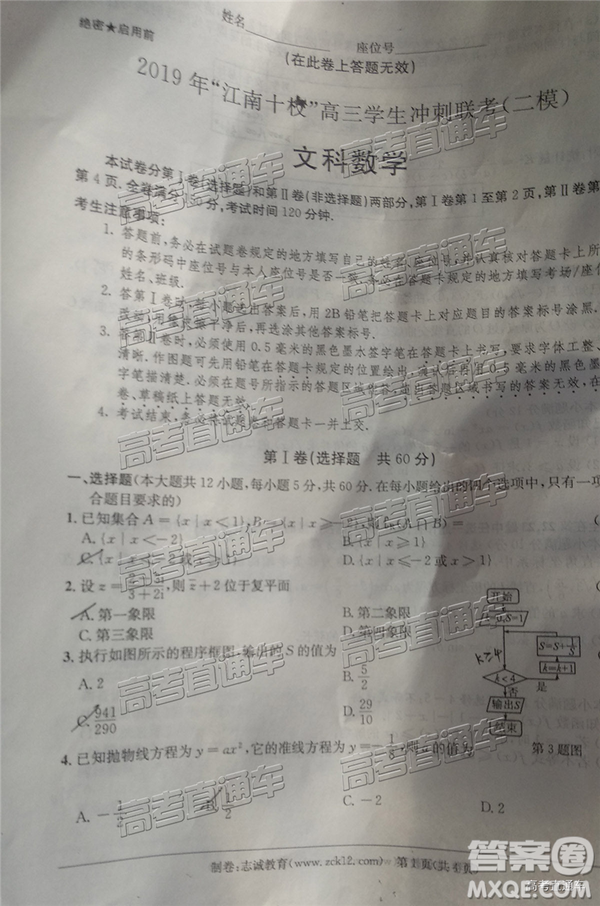 绝密★启用前
姓名
座位号
(在此卷上答题无效)
2019年“江南十校”高三学生冲刺联考(二模)
文科数学
本试卷分第Ⅰ卷(选择题)和第Ⅱ卷(非选择题)两部分,第Ⅰ卷第1至第2页,第Ⅱ卷第
第4页.全卷满分150分,考试时间120分钟.
考生注意事项:
1. 答题前,务必在试题卷规定的地方填写自己的
的条形码中座位号与本人座位号是否一致.务必在
姓名、班级.
2. 答第Ⅰ卷时,每小题选出答案后,用2B铅笔把答题卡上对应题目的答案标号涂黑.
改动,用橡皮擦干净后,再选涂其他答案标号.
3. 答第Ⅱ卷时,必须使用0.5毫米的黑色墨水签字笔在答题卡上书写,要求字体工整、
清晰.作图题可先用铅笔在答题卡规定的位置绘出,确认后再用0.5毫米的黑色
字笔描清楚.必须在题号所指示的答题区域作答,超出答题区域书写的答案无效,在
卷、草稿纸上答题无效.
4. 考试结束,务必将试题卷和答题卡一并上交.
第Ⅰ卷(选择题 共60分)
一、选择题(本大题共12小题,每小题5分,共60分.在每小题给出的四个选项中,只有一项
合题目要求的)
1. 已知集合A={x|x<1},B=
A. {x|x<-2}
B. {x|x⩽1}
C. {x|x 或x⩾1}
D. {x|x<-2或x>1}
2. 设z= ,则z̄+2位于复平面
A. 第一象限
B. 第二象限
C. 第三象限
D. 第四象限
3. 执行如图所示的程序框图,输出的S的值为
A. 2
B. 5/2
C. 941/290
D. 29/10
开始
S=1
S=S+
k=k+1
k<4
是
否
输出S
结束
第3题图
4. 已知抛物线方程为y=ax²,它的准线方程为y=-1/8,则a的值为
A. -1/2
B. 1/2
C. -2
D. 2
制卷:志诚教育(www.zck12.com) 第1页(共4页)
高考直通车
答案圈
MXQE.COM